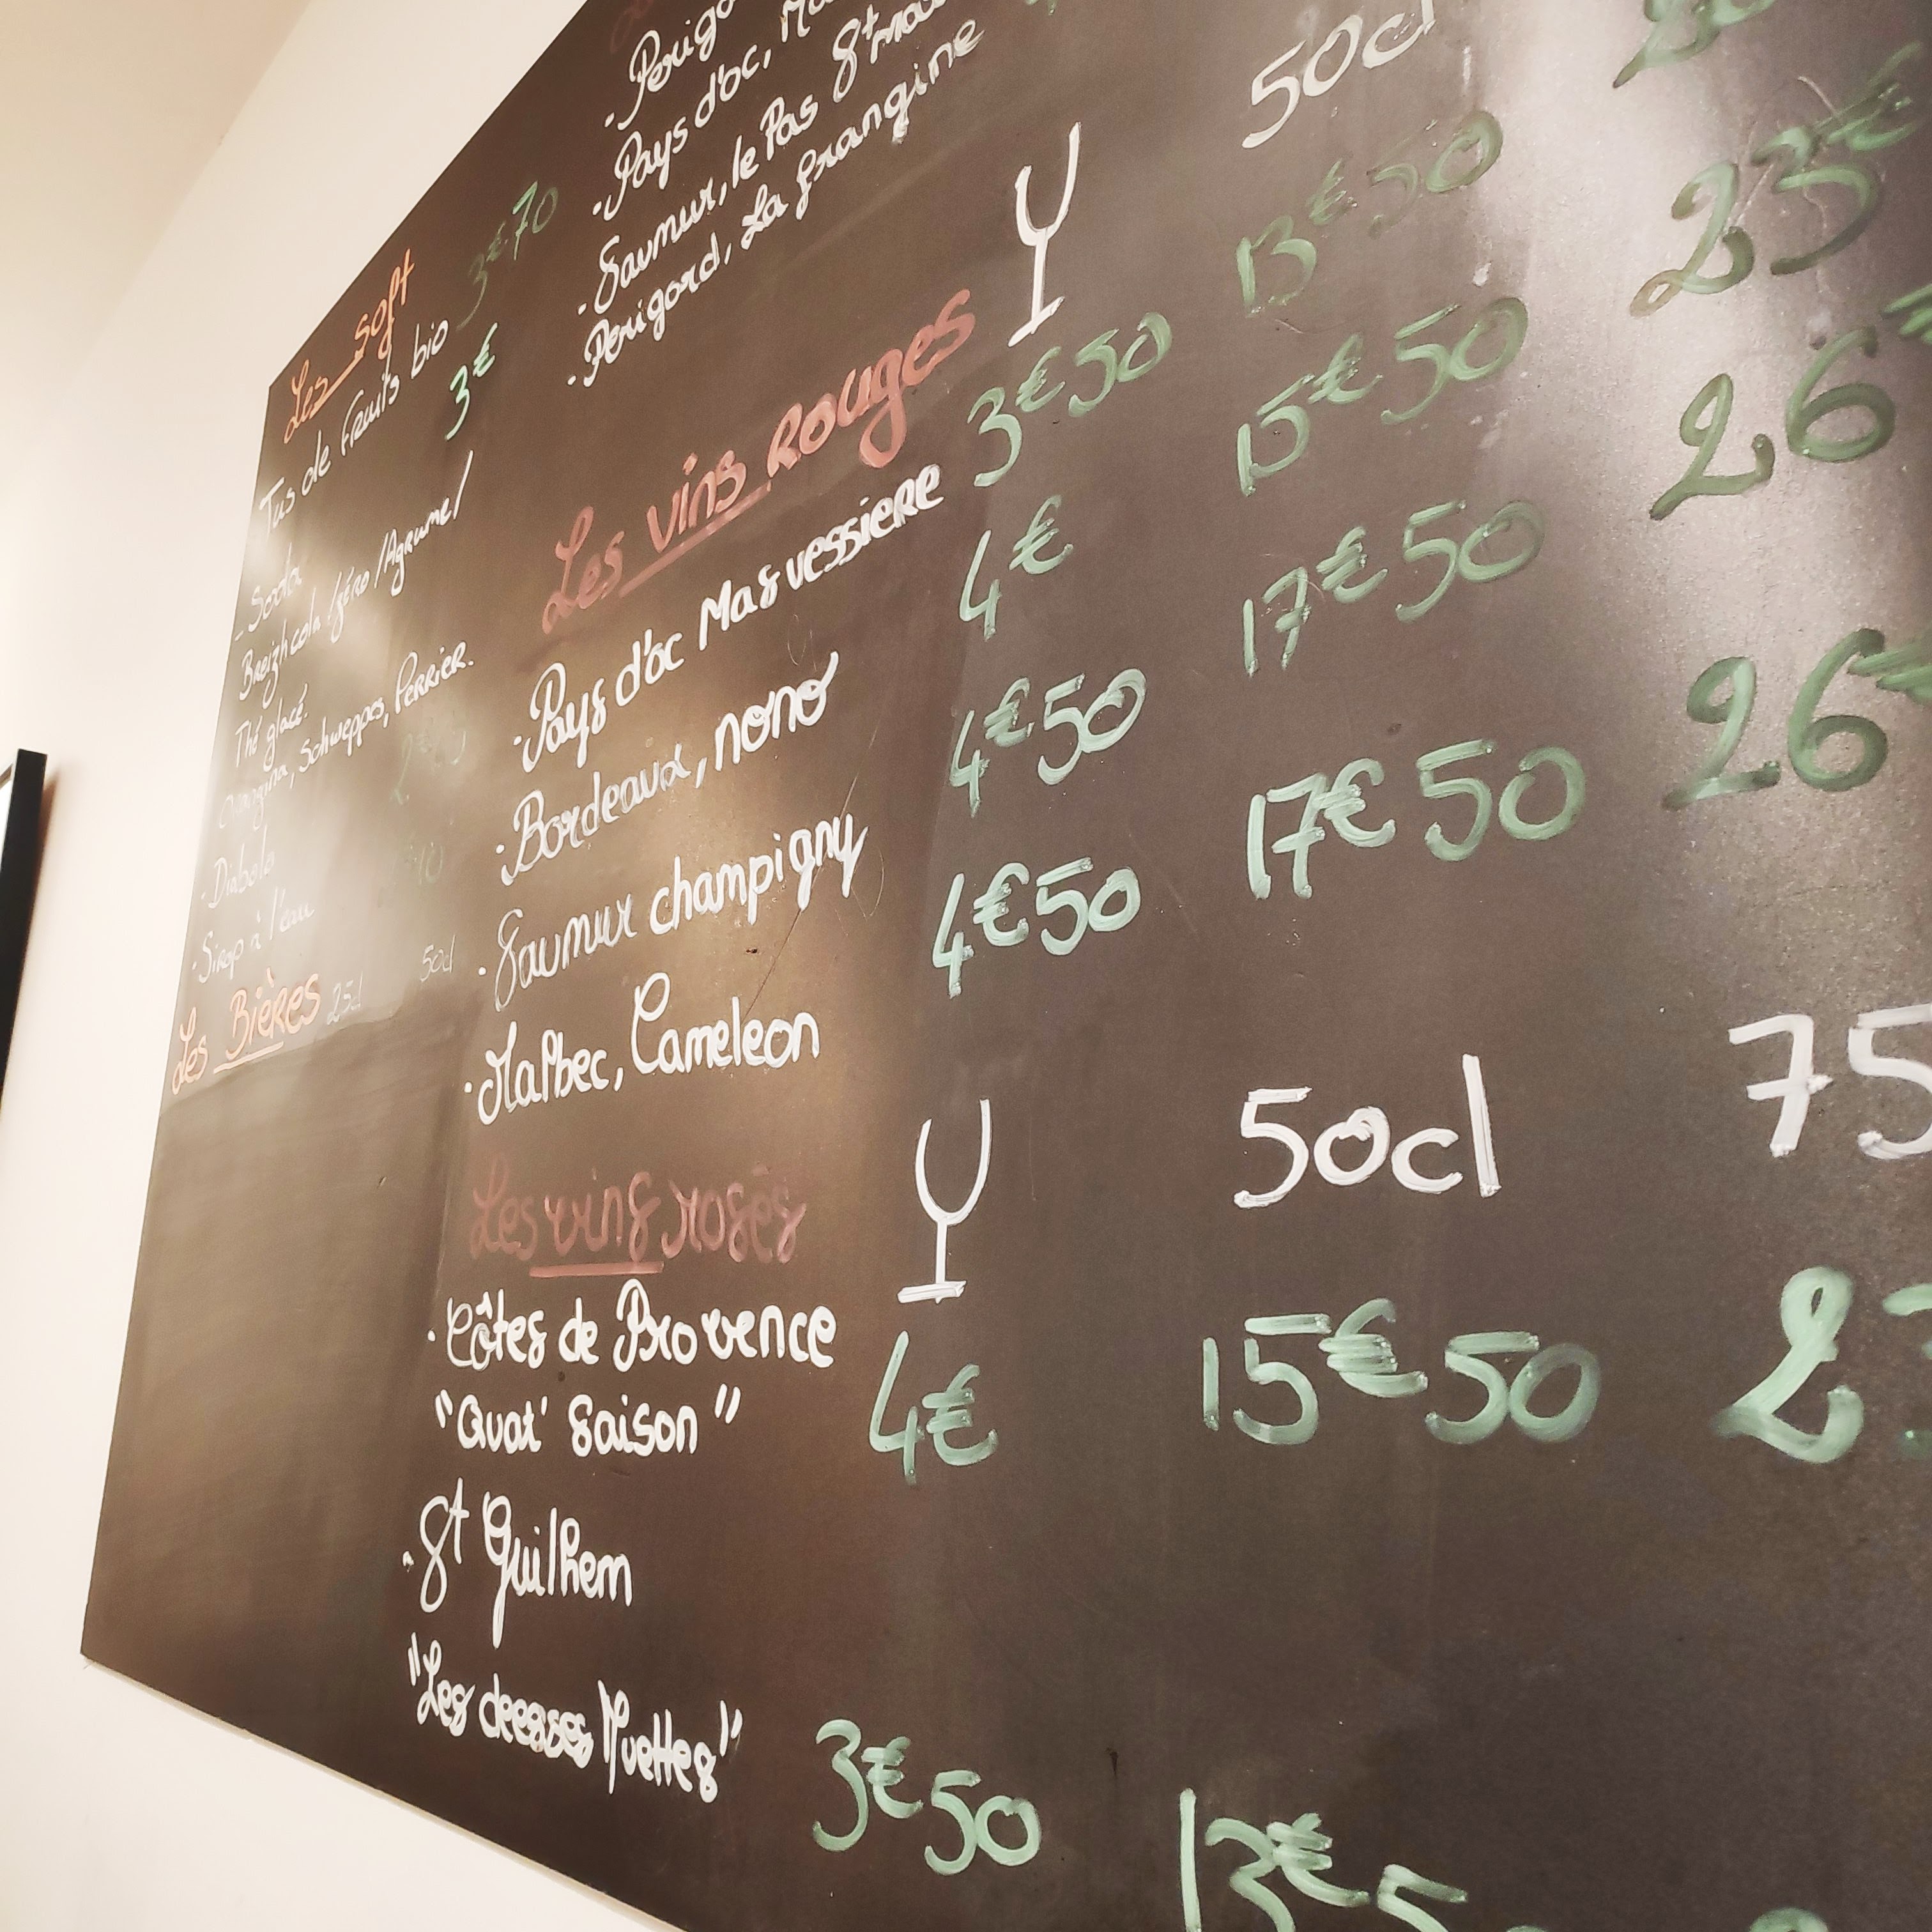 Les soft
Jus de Fruits bio 3€70
3€
- Soda
Breizh cola / zéro / Agrume /
Thé glacé.
Orangina, Schweppes, Perrier.
. Diabolo
. Sirop à l'eau
Les Bières 25cl 50cl
. Pays d'oc,
. Saumur, le Pas St
. Perigord, La grangine
50cl
Les vins Rouges
. Pays d'oc Mas vessiere 3€50 13€50 23€
. Bordeaux, nono 4€ 15€50 26
. Saumur champigny 4€50 17€50 26
. Malbec, Cameleon 4€50 17€50
Les vins rosés 50cl 75
. Côtes de Provence
"Quat' Saison" 4€ 15€50 2
. St Guilhem
"Les deesses Muettes" 3€50 13€5